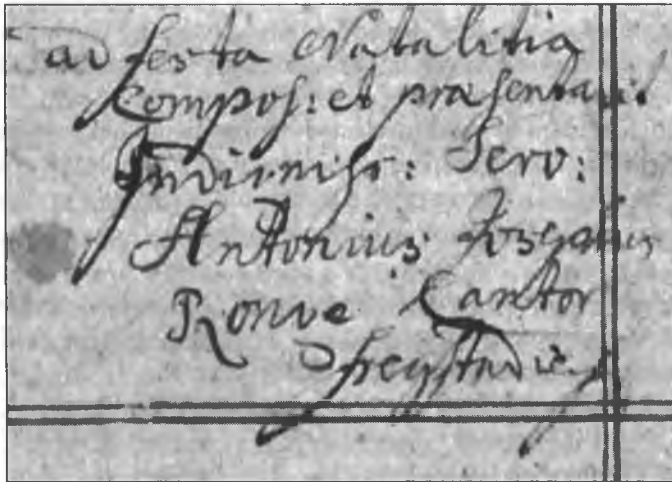 ad festa Natalitia
Compos: et præsentavit
Indigniss: Serv:
Antonius Josephus
Cantor
Freystadii